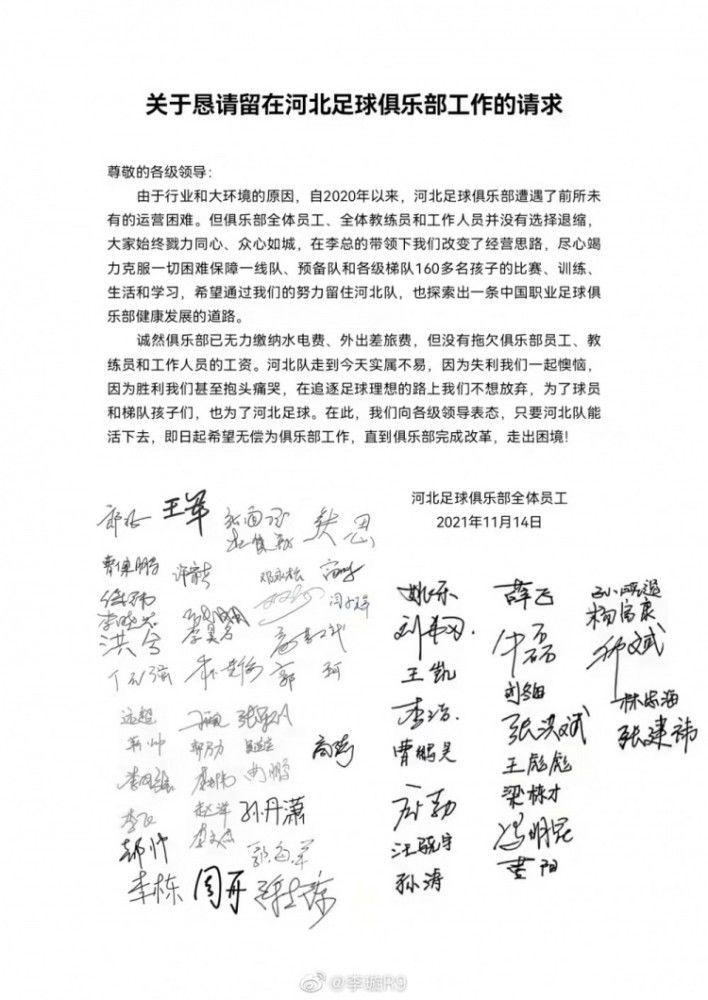 关于恳请留在河北足球俱乐部工作的请求
尊敬的各级领导：
由于行业和大环境的原因，自2020年以来，河北足球俱乐部遭遇了前所未
有的运营困难。但俱乐部全体员工、全体教练员和工作人员并没有选择退缩，
大家始终戮力同心、众心如城，在李总的带领下我们改变了经营思路，尽心竭
力克服一切困难保障一线队、预备队和各级梯队160多名孩子的比赛、训练、
生活和学习，希望通过我们的努力留住河北队，也探索出一条中国职业足球俱
乐部健康发展的道路。
诚然俱乐部已无力缴纳水电费、外出差旅费，但没有拖欠俱乐部员工、教
练员和工作人员的工资。河北队走到今天实属不易，因为失利我们一起懊恼，
因为胜利我们甚至抱头痛哭，在追逐足球理想的路上我们不想放弃，为了球员
和梯队孩子们，也为了河北足球。在此，我们向各级领导表态，只要河北队能
活下去，即日起希望无偿为俱乐部工作，直到俱乐部完成改革，走出困境！
河北足球俱乐部全体员工
2021年11月14日
王军
曹保鹏
姚乐
薛飞
杨富康
洪兮
王凯
刘翔
林忠海
李浩
张洪斌
张建祎
曹鹏昊
王彪彪
梁栋才
孙丹潇
汪晓宇
冯明昆
郝帅
黄阳
李栋
周开
孙涛
@李璇R9